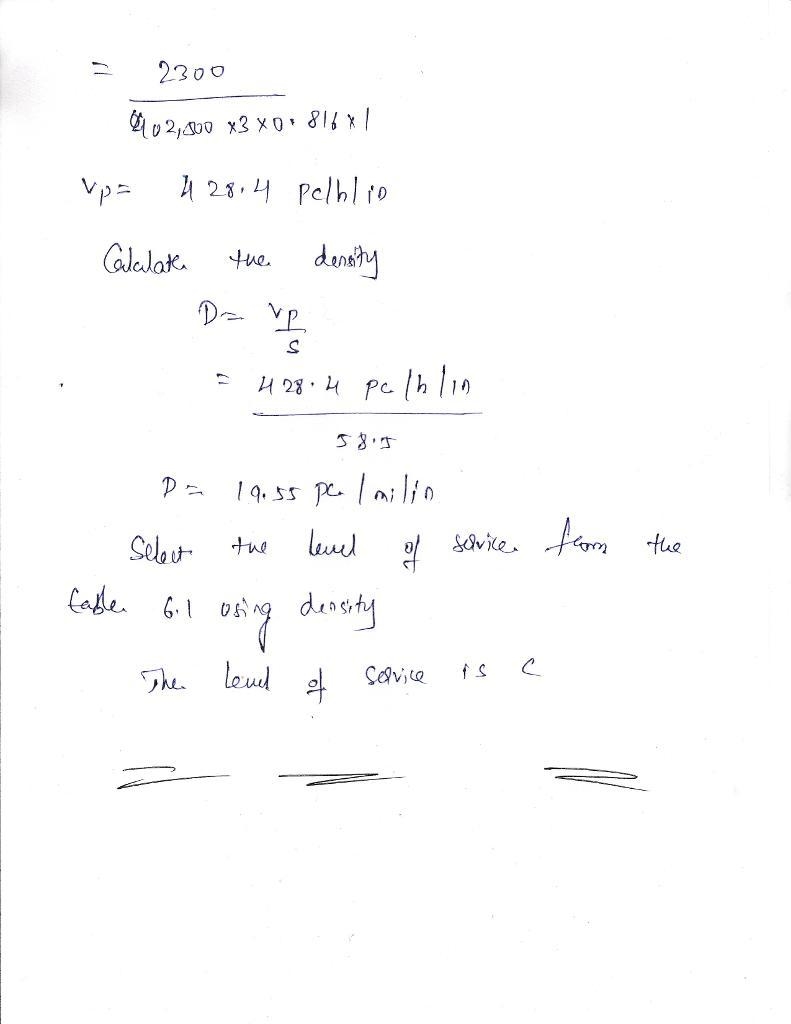 = 2300
02,500 x3 x 0.816 x 1
Vp = 428.4 pc/h/in
Calculate the density
D = Vp
S
= 428.4 pc/h/in
58.5
D = 19.55 pc/mi/in
Select the level of service from the
table 6.1 using density
The level of service is C